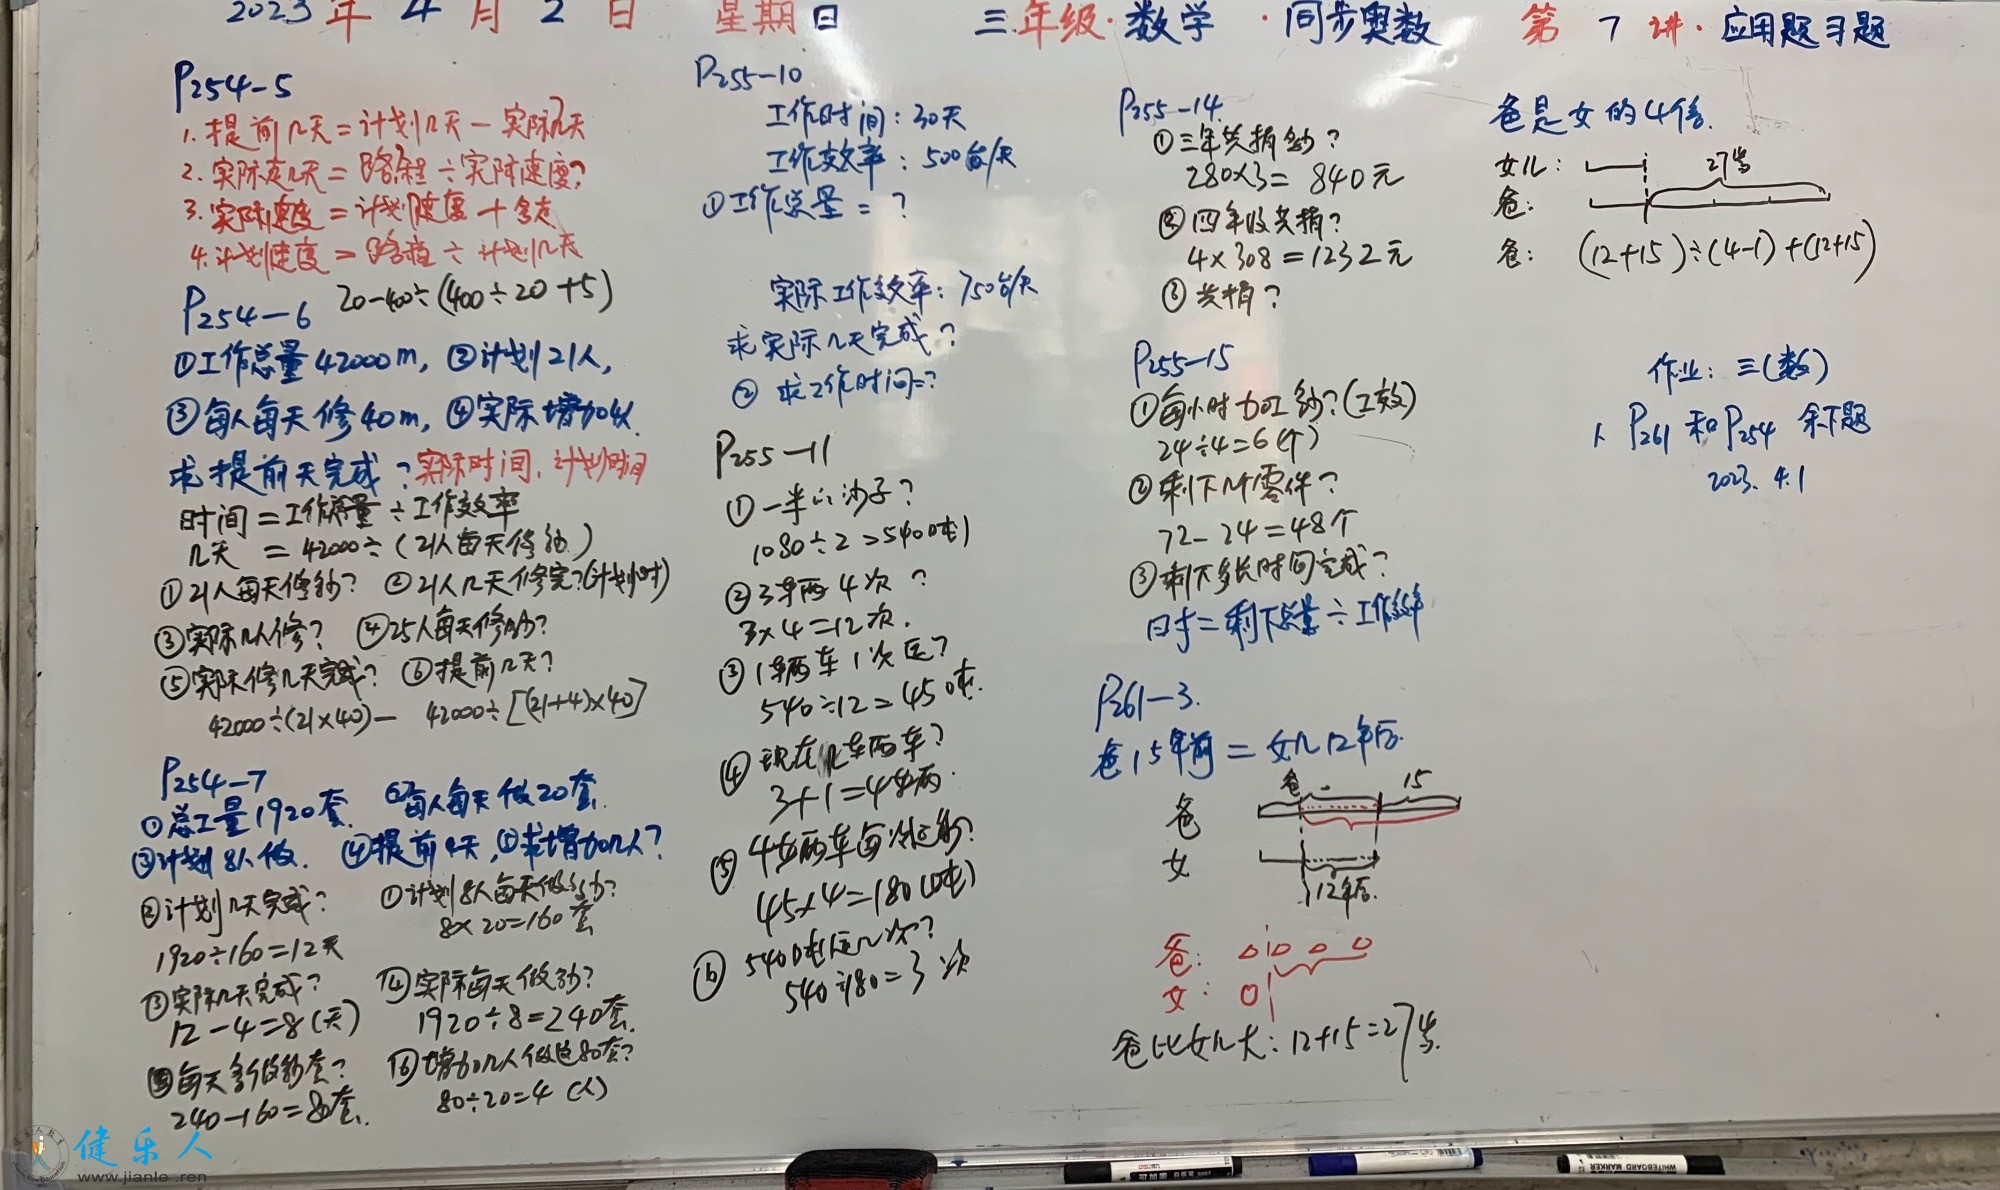 2023年4月2日 星期日 三年级·数学·同步奥数 第7讲·应用题习题
P254-5
1.提前几天=计划几天-实际几天
2.实际走几天=路程÷实际速度?
3.实际速度=计划速度+多走
4.计划速度=路程÷计划几天
20-400÷(400÷20+5)
P254-6
①工作总量42000m,②计划21人,
③每人每天修40m,④实际增加4人.
求提前天完成?实际时间,计划时间
时间=工作总量÷工作效率
几天=42000÷(21人每天修多少)
①21人每天修多少? ②21人几天修完?(计划时)
③实际几人修? ④25人每天修多少?
⑤实际修几天完成? ⑥提前几天?
42000÷(21×40)- 42000÷[(21+4)×40]
P254-7
①总工量1920套. ②每人每天做20套.
③计划8人做. ④提前4天,⑤求增加几人?
①计划8人每天做多少?
8×20=160套
②计划几天完成?
1920÷160=12天
③实际几天完成?
12-4=8(天)
④实际每天做多少?
1920÷8=240套.
⑤每天多做多少套?
240-160=80套.
⑥增加几人做这80套?
80÷20=4(人)
P255-10
工作时间:30天
工作效率:500台/天
①工作总量=?
实际工作效率:750台/天
求实际几天完成?
②求工作时间=?
P255-11
①一半的沙子?
1080÷2=540(吨)
②3车两4次?
3×4=12次.
③1辆车1次运?
540÷12=45吨.
④现在几车两车?
3+1=4车两.
⑤4车两车每次运多少?
45×4=180(吨)
⑥540吨运几次?
540÷180=3次
P255-14
①三年共捐多少?
280×3=840元
②四年级共捐?
4×308=1232元
③共捐?
P255-15
①每小时加工多少?(工效)
24÷4=6(个)
②剩下几个零件?
72-24=48个
③剩下多长时间完成?
时=剩下总量÷工作效率
P261-3.
爸15年前=女儿12年后.
爸 15
爸
女
12年后.
爸:
女:
爸比女儿大:12+15=27岁.
爸是女的4倍.
女儿: 27岁
爸:
爸:(12+15)÷(4-1)+(12+15)
作业:三(数)
1、P261和P254余下题
2023.4.1
健乐人
www.jianle.ren
WHITEBOARD MARKER